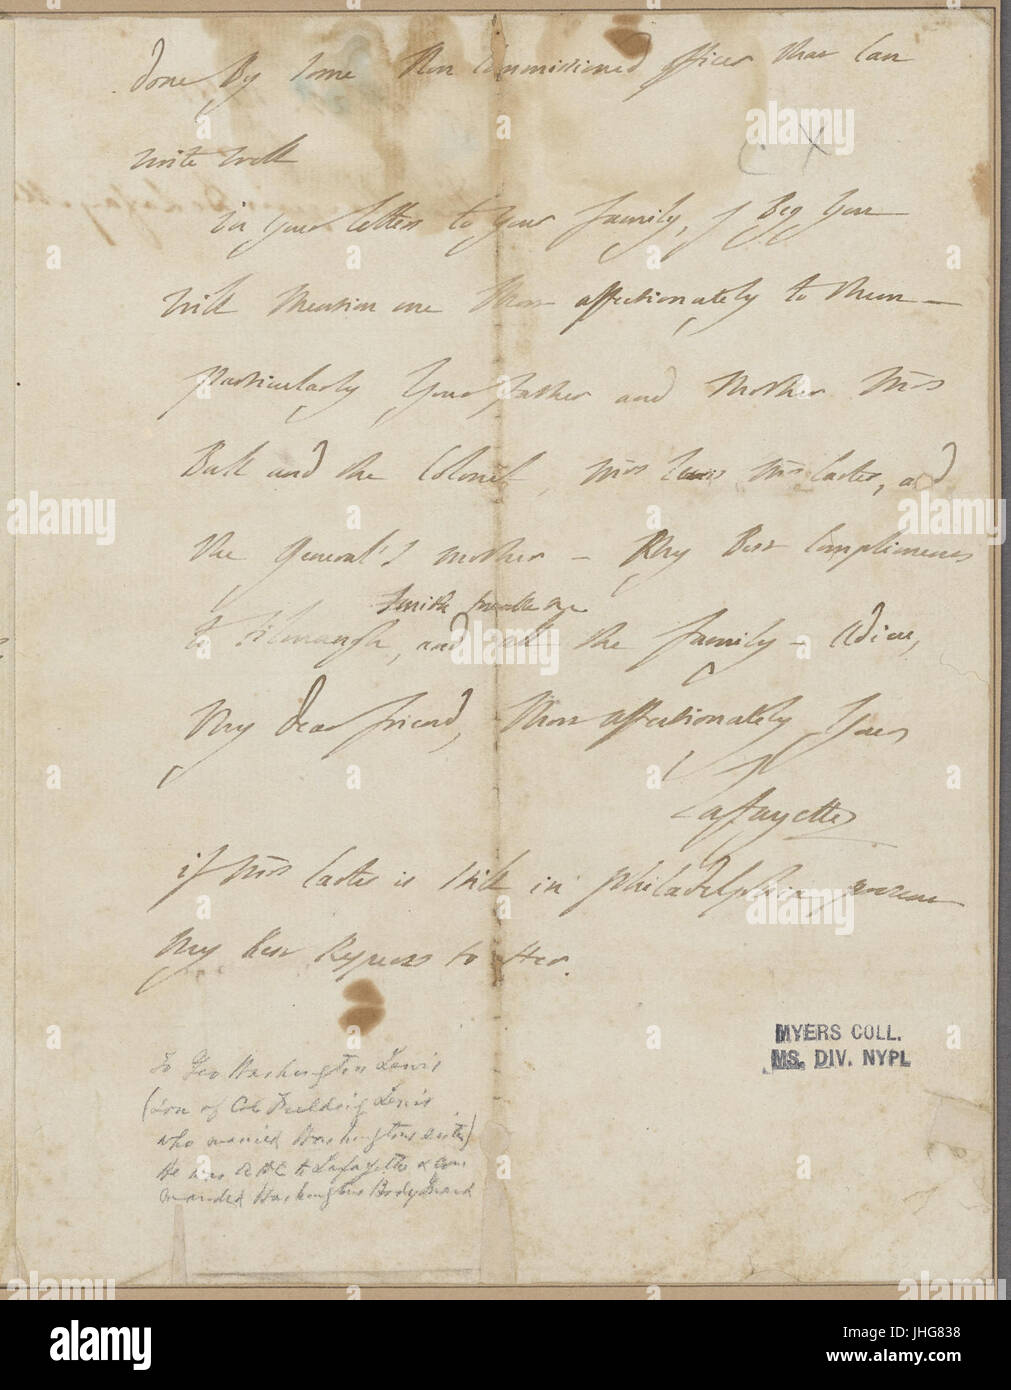 done by some Non Commissioned officer that Can
write well
in your letters to your family, I Beg You
will mention me Most affectionately to them —
particularly Your father and Mother Mrs
Ball and the Colonel, Mrs Lewis Mrs Carter, and
the General's mother — My Best Compliments
to and all the family — Adieu,
My dear friend, Most affectionately Yours
Lafayette
if Mrs Carter is still in philadelphia present
My best Respects to Her.
To Geo Washington Lewis
(son of Col Fielding Lewis
who married Washingtons sister)
He was A D C to Lafayette & com
manded Washingtons Body Guard
MYERS COLL.
MS. DIV. NYPL
alamy
alamy stock photo
JHG838
www.alamy.com